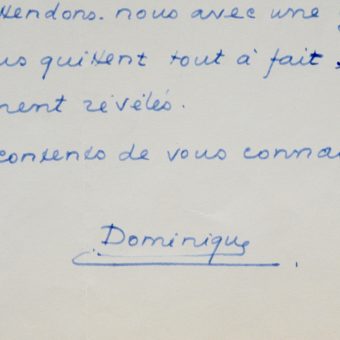 ttendons. nous avec une
us quittent tout à fait
ment révélés.
contents de vous conna
Dominique